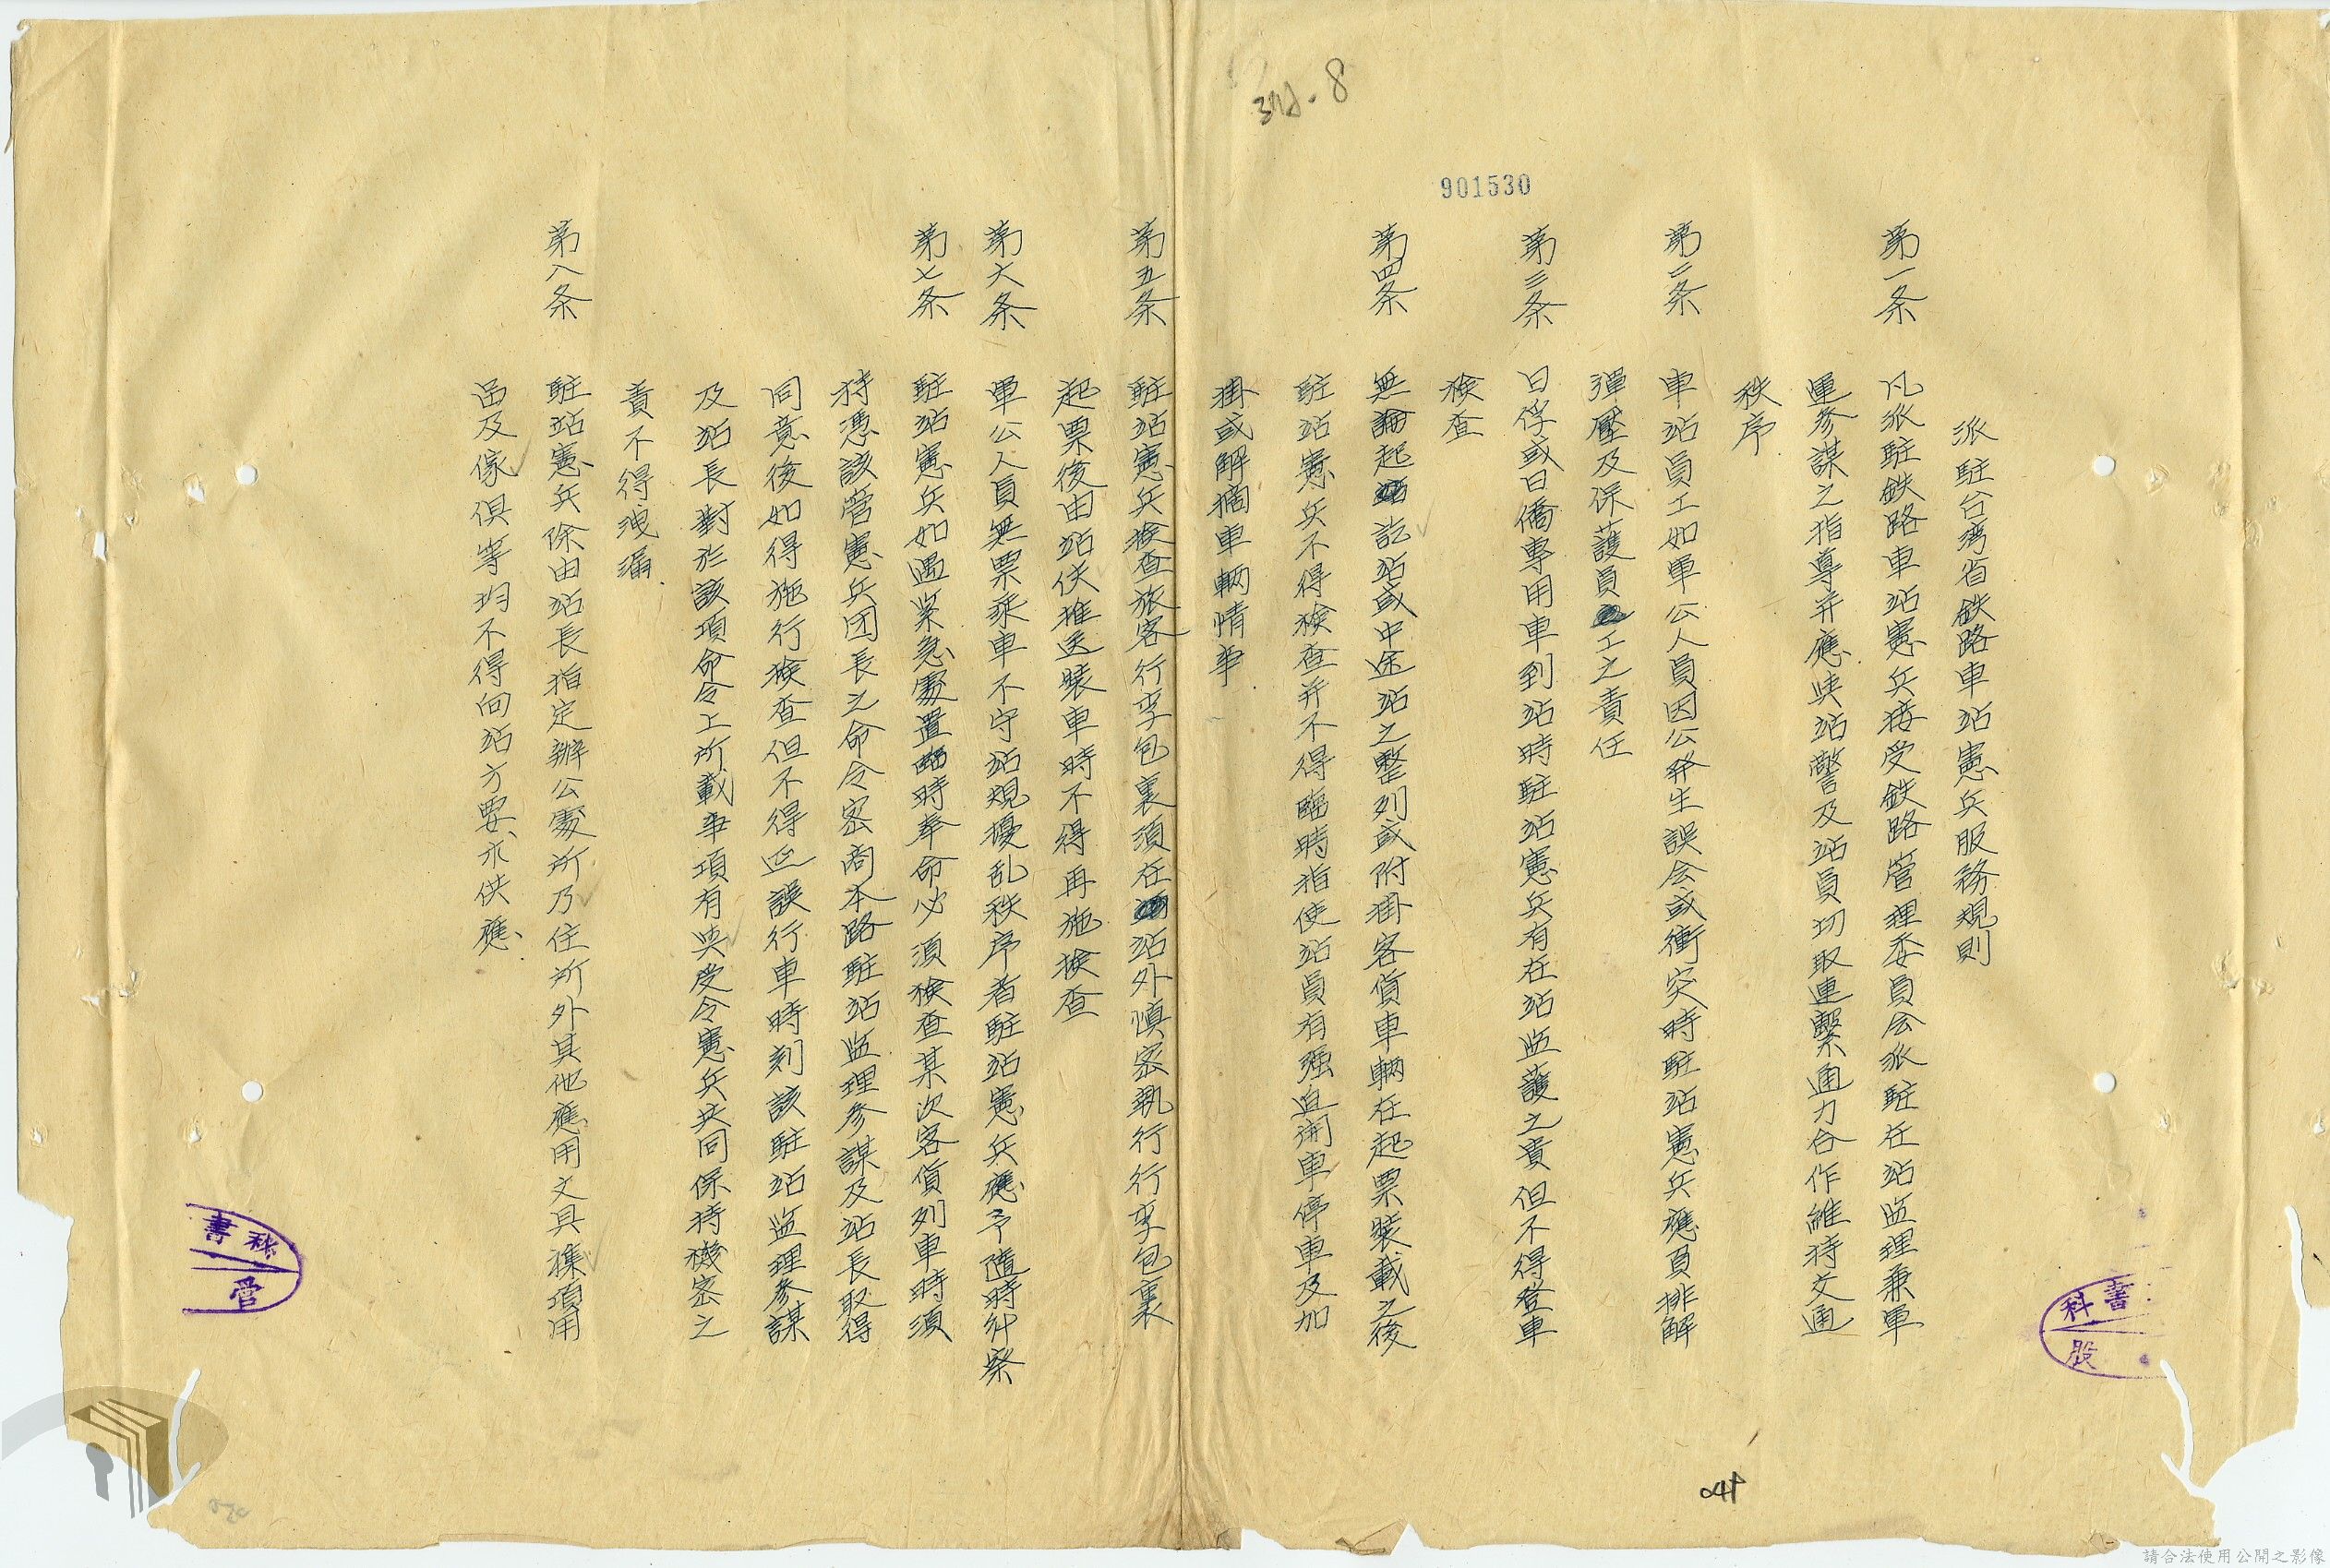 901530
派駐台湾省鉄路車站憲兵服務規則
第一条 凡派駐鉄路車站憲兵接受鉄路管理委員会派駐在站监理兼軍
運參謀之指導并應與站警及站員切取連繫通力合作維持交通
秩序
第二条 車站員工如軍公人員因公発生誤会或衝突時駐站憲兵應負排解
彈壓及保護員工之責任
第三条 日俘或日僑專用車到站時駐站憲兵有在站监護之責但不得登車
検查
第四条 無論起訖站或中途站之整列或附掛客貨車輛在起票裝載之後
駐站憲兵不得検查并不得臨時指使站員有强迫開車停車及加
掛或解摘車輛情事
第五条 駐站憲兵検查旅客行李包裹須在站外慎密執行行李包裹
起票後由站伕推送裝車時不得再施検查
第六条 軍公人員無票乘車不守站規擾乱秩序者駐站憲兵應予隨時糾察
第七条 駐站憲兵如遇紧急處置臨時奉命必須検查某次客貨列車時須
持憑該管憲兵团長之命令密商本路駐站监理參謀及站長取得
同意後如得施行検查但不得延誤行車時刻該駐站监理參謀
及站長對於該項命令上所載事項有與受令憲兵共同保持機密之
責不得洩漏
第八条 駐站憲兵除由站長指定辦公處所乃住所外其他應用文具雜項用
品及傢俱等均不得向站方要求供應
秘書
管
書
科
股
041
請合法使用公開之影像